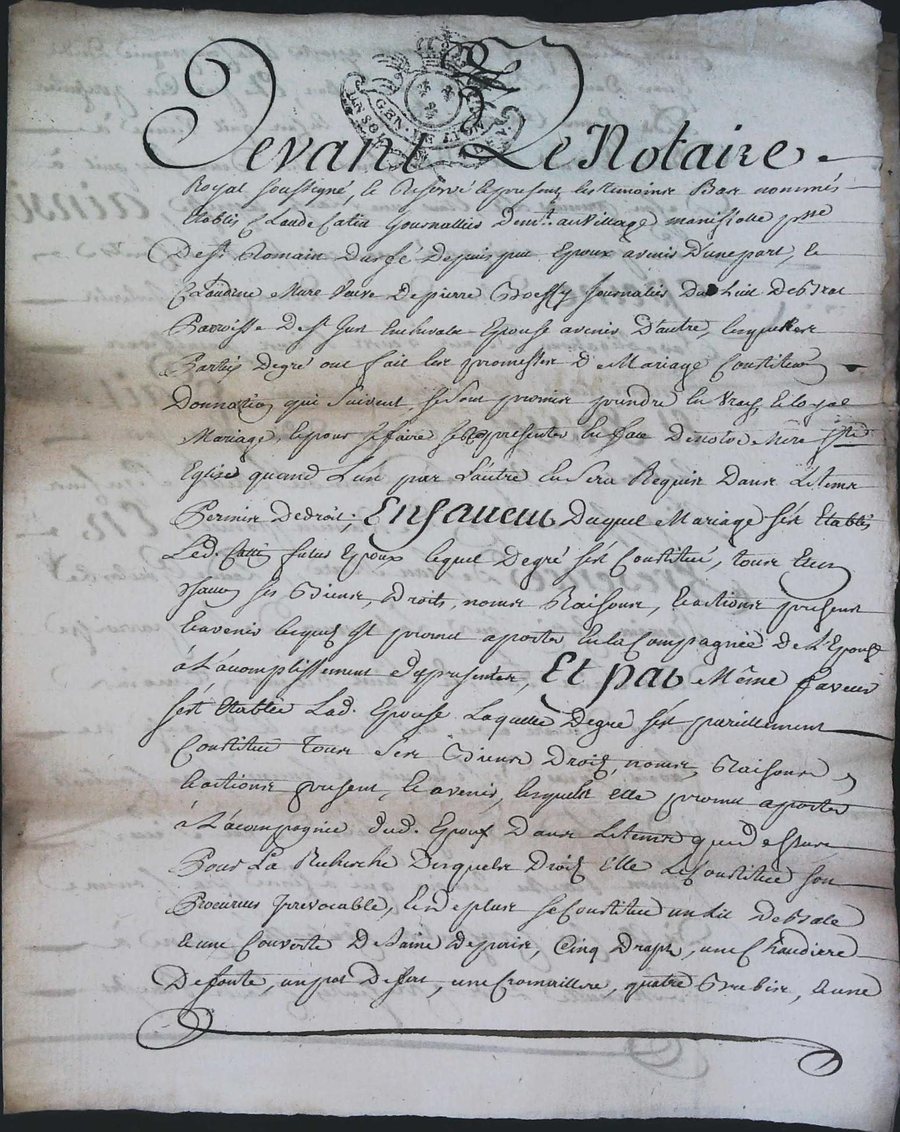 GEN. DE LION
Devant Le Notaire
Royal soussigné, le Reservé & presens les temoins Bas nommés
établis Claude Catin Journallier dem.t au village
De St Romain Durfé Depuis peu Epoux avenir D'une part, &
Claudine Mure veuve De pierre Journalier
Parroisse De st Just Enchevalet Epouse avenir D'autre, lesquelles
Parties Degré ont fait les promesses De Mariage Constitution
Donnation qui suivent, se sont promis prendre En vray & loyal
Mariage, & pour ce faire se representer En face De notre Mere ste
Eglise quand L'un par L'autre En sera Requis Dans Les tems
Permis De droit; En faveur Duquel Mariage s'est Etablis
Led. Catin futur Epoux lequel Degré s'est Constitué, tous &
ses Biens, Droits, noms Raisons, & actions present
& avenir lesquels Il promet aporter En la Compagnée De L'Epouse
à L'acomplissement Des presentes, Et par Même faveur
s'est Etablie Lad. Epouse Laquelle Degré s'est pareillement
Constitué tous ses Biens Droits, noms, Raisons,
& actions present, & avenir, lesquels elle promet aporter
à La compagnie dud. Epoux Dans Le tems que dessus
Pour La Recherche Desquels Droits elle Le Constitue son
Procureur Irrevocable, & De plus se Constitue un Lit De Bale
& une Couverte De laine Depoise, Cinq Draps, une Chaudiere
De fonte, un pot De fert, une Cromaillere, quatre Brebis, & une